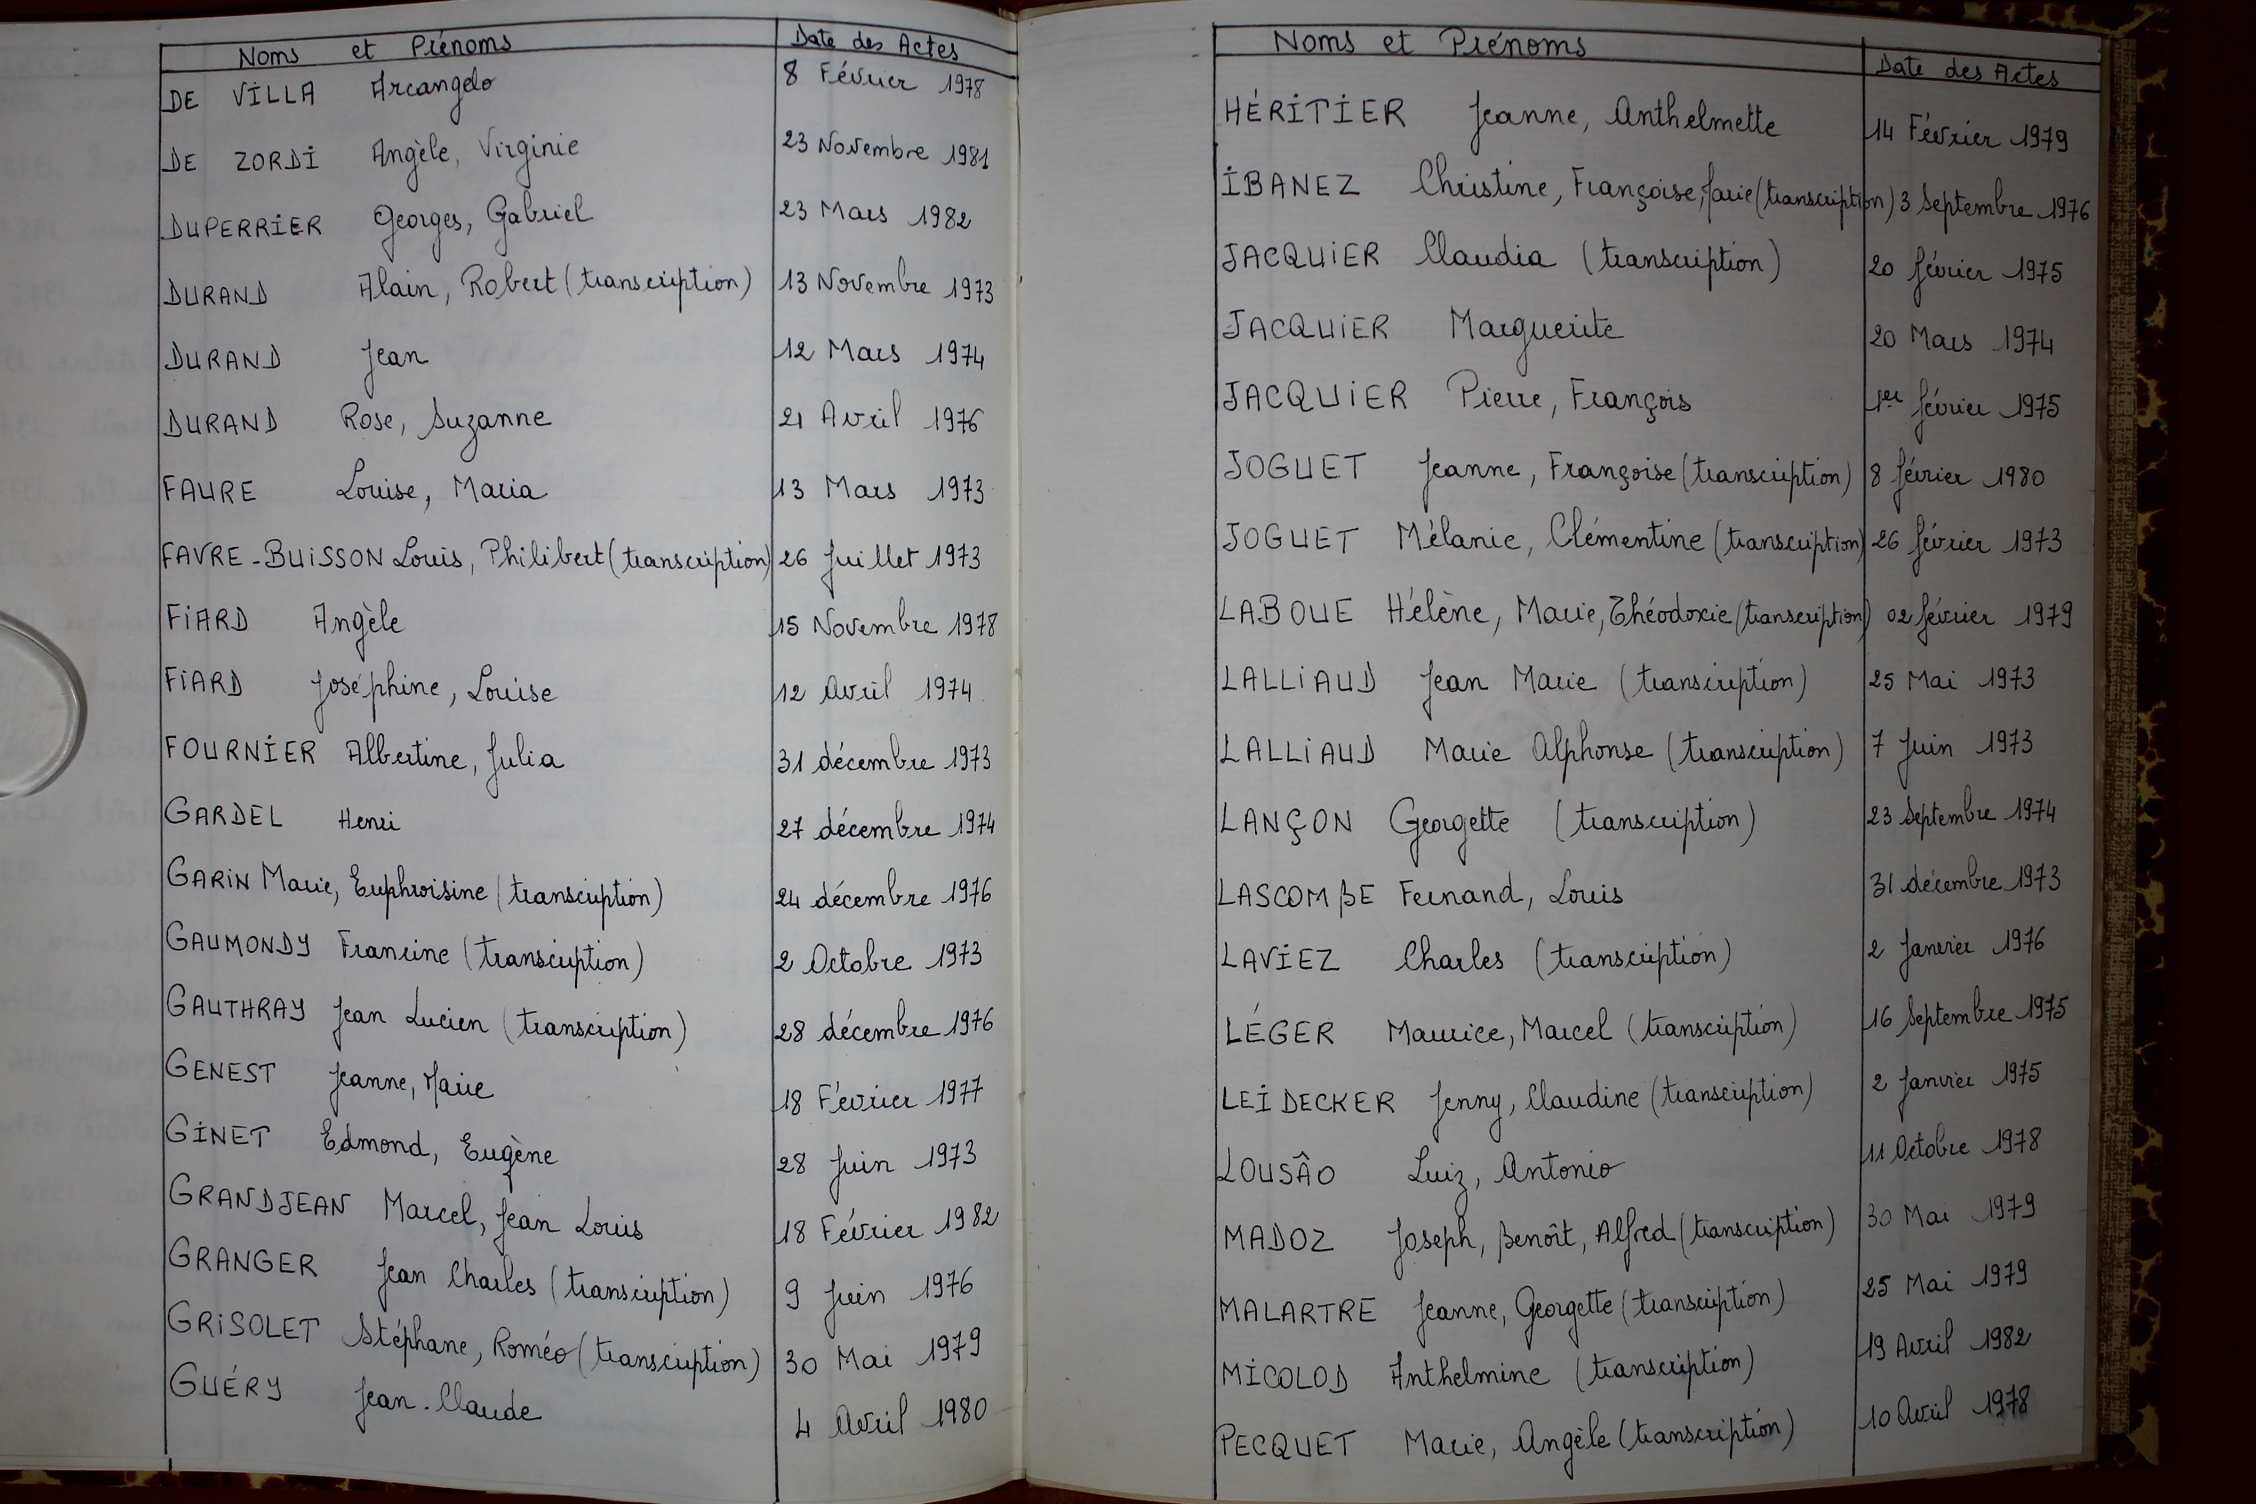 Noms et Prénoms Date des Actes
DE VILLA Arcangelo 8 Février 1978
DE ZORDI Angèle, Virginie 23 Novembre 1981
DUPERRIER Georges, Gabriel 23 Mars 1982
DURAND Alain, Robert (transcription) 13 Novembre 1973
DURAND Jean 12 Mars 1974
DURAND Rose, Suzanne 21 Avril 1976
FAURE Louise, Maria 13 Mars 1973
FAVRE-BUISSON Louis, Philibert (transcription) 26 Juillet 1973
FIARD Angèle 15 Novembre 1978
FIARD Joséphine, Louise 12 Avril 1974
FOURNIER Albertine, Julia 31 décembre 1973
GARDEL Henri 27 décembre 1974
GARIN Marie, Euphroisine (transcription) 24 décembre 1976
GAUMONDY Francine (transcription) 2 Octobre 1973
GAUTHRAY Jean Lucien (transcription) 28 décembre 1976
GENEST Jeanne, Marie 18 Février 1977
GINET Edmond, Eugène 28 Juin 1973
GRANDJEAN Marcel, Jean Louis 18 Février 1982
GRANGER Jean Charles (transcription) 9 Juin 1976
GRISOLET Stéphane, Roméo (transcription) 30 Mai 1979
GUÉRY Jean-Claude 4 Avril 1980
Noms et Prénoms Date des Actes
HÉRITIER Jeanne, Anthelmette 14 Février 1979
IBANEZ Christine, Françoise, Marie (transcription) 3 Septembre 1976
JACQUIER Claudia (transcription) 20 février 1975
JACQUIER Marguerite 20 Mars 1974
JACQUIER Pierre, François 1er février 1975
JOGUET Jeanne, Françoise (transcription) 8 février 1980
JOGUET Mélanie, Clémentine (transcription) 26 février 1973
LABOUE Hélène, Marie, Théodoxie (transcription) 02 février 1979
LALLIAUD Jean Marie (transcription) 25 Mai 1973
LALLIAUD Marie Alphonse (transcription) 7 Juin 1973
LANÇON Georgette (transcription) 23 Septembre 1974
LASCOMBE Fernand, Louis 31 décembre 1973
LAVIEZ Charles (transcription) 2 Janvier 1976
LÉGER Maurice, Marcel (transcription) 16 Septembre 1975
LEIDECKER Jenny, Claudine (transcription) 2 Janvier 1975
LOUSÂO Luiz, Antonio 11 Octobre 1978
MADOZ Joseph, Benoît, Alfred (transcription) 30 Mai 1979
MALARTRE Jeanne, Georgette (transcription) 25 Mai 1979
MICOLOD Anthelmine (transcription) 19 Avril 1982
PECQUET Marie, Angèle (transcription) 10 Avril 1978